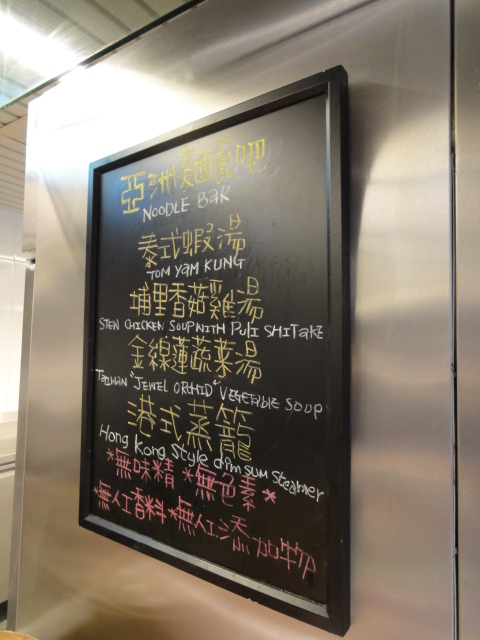 亞洲麵食吧
NOODLE BAR
泰式蝦湯
TOM YAM KUNG
埔里香菇雞湯
STEN CHICKEN SOUP WITH PULI SHITAKE
金線蓮蔬菜湯
TAIWAN "JEWEL ORCHID" VEGETABLE SOUP
港式蒸籠
Hong Kong Style dim sum Steamer
*無味精 *無色素*
*無人工香料*無人工添加物